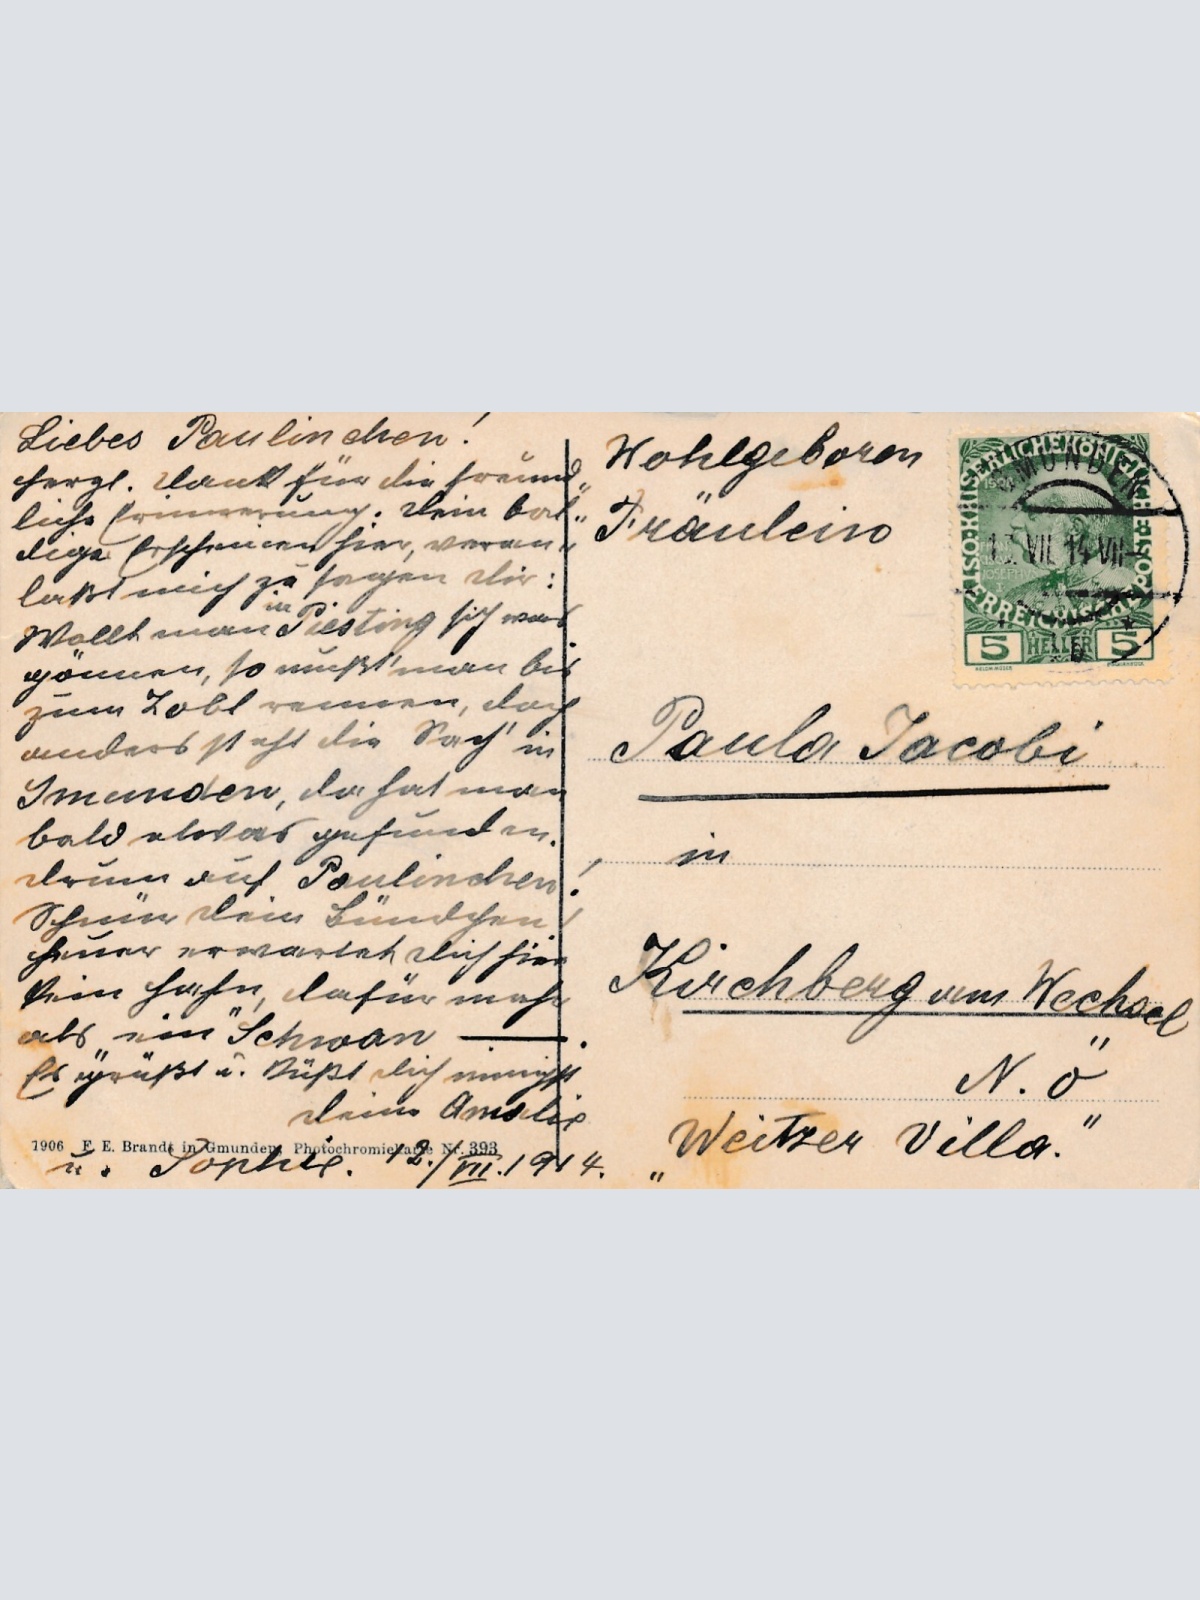 Liebes Paulinchen!
Herzl. Dank für die freund„
liche Erinnerung. Dein bal„
dige Erscheinen hier, veran„
laßt mich zu sagen Dir:
Wollt man in Piesting sich was
gönnen, so mußt' man bis
zum Zobl rennen, doch
anders steht die Sach' in
Gmunden, da hat man
bald etwas gefunden.
Drum auf, Paulinchen!
Schnür Dein Bündchen!
heuer erwartet Dich hier
kein Hahn, dafür mehr
als „ein“ Schwan —.
Es grüßt u. küßt Dich innigst
Deine Amalie
u. Sophie. 12./VII.1914.
1906 F. E. Brandt in Gmunden, Photochromiekarte Nr. 393
Wohlgeboren
Fräulein
Paula Jacobi
in
Kirchberg am Wechsel
N. Ö
„Weitzer Villa.“
KAISERLICHE KÖNIGLICHE ÖSTERREICHISCHE POST
5 HELLER 5
GMUNDEN
13. VII. 14 VII